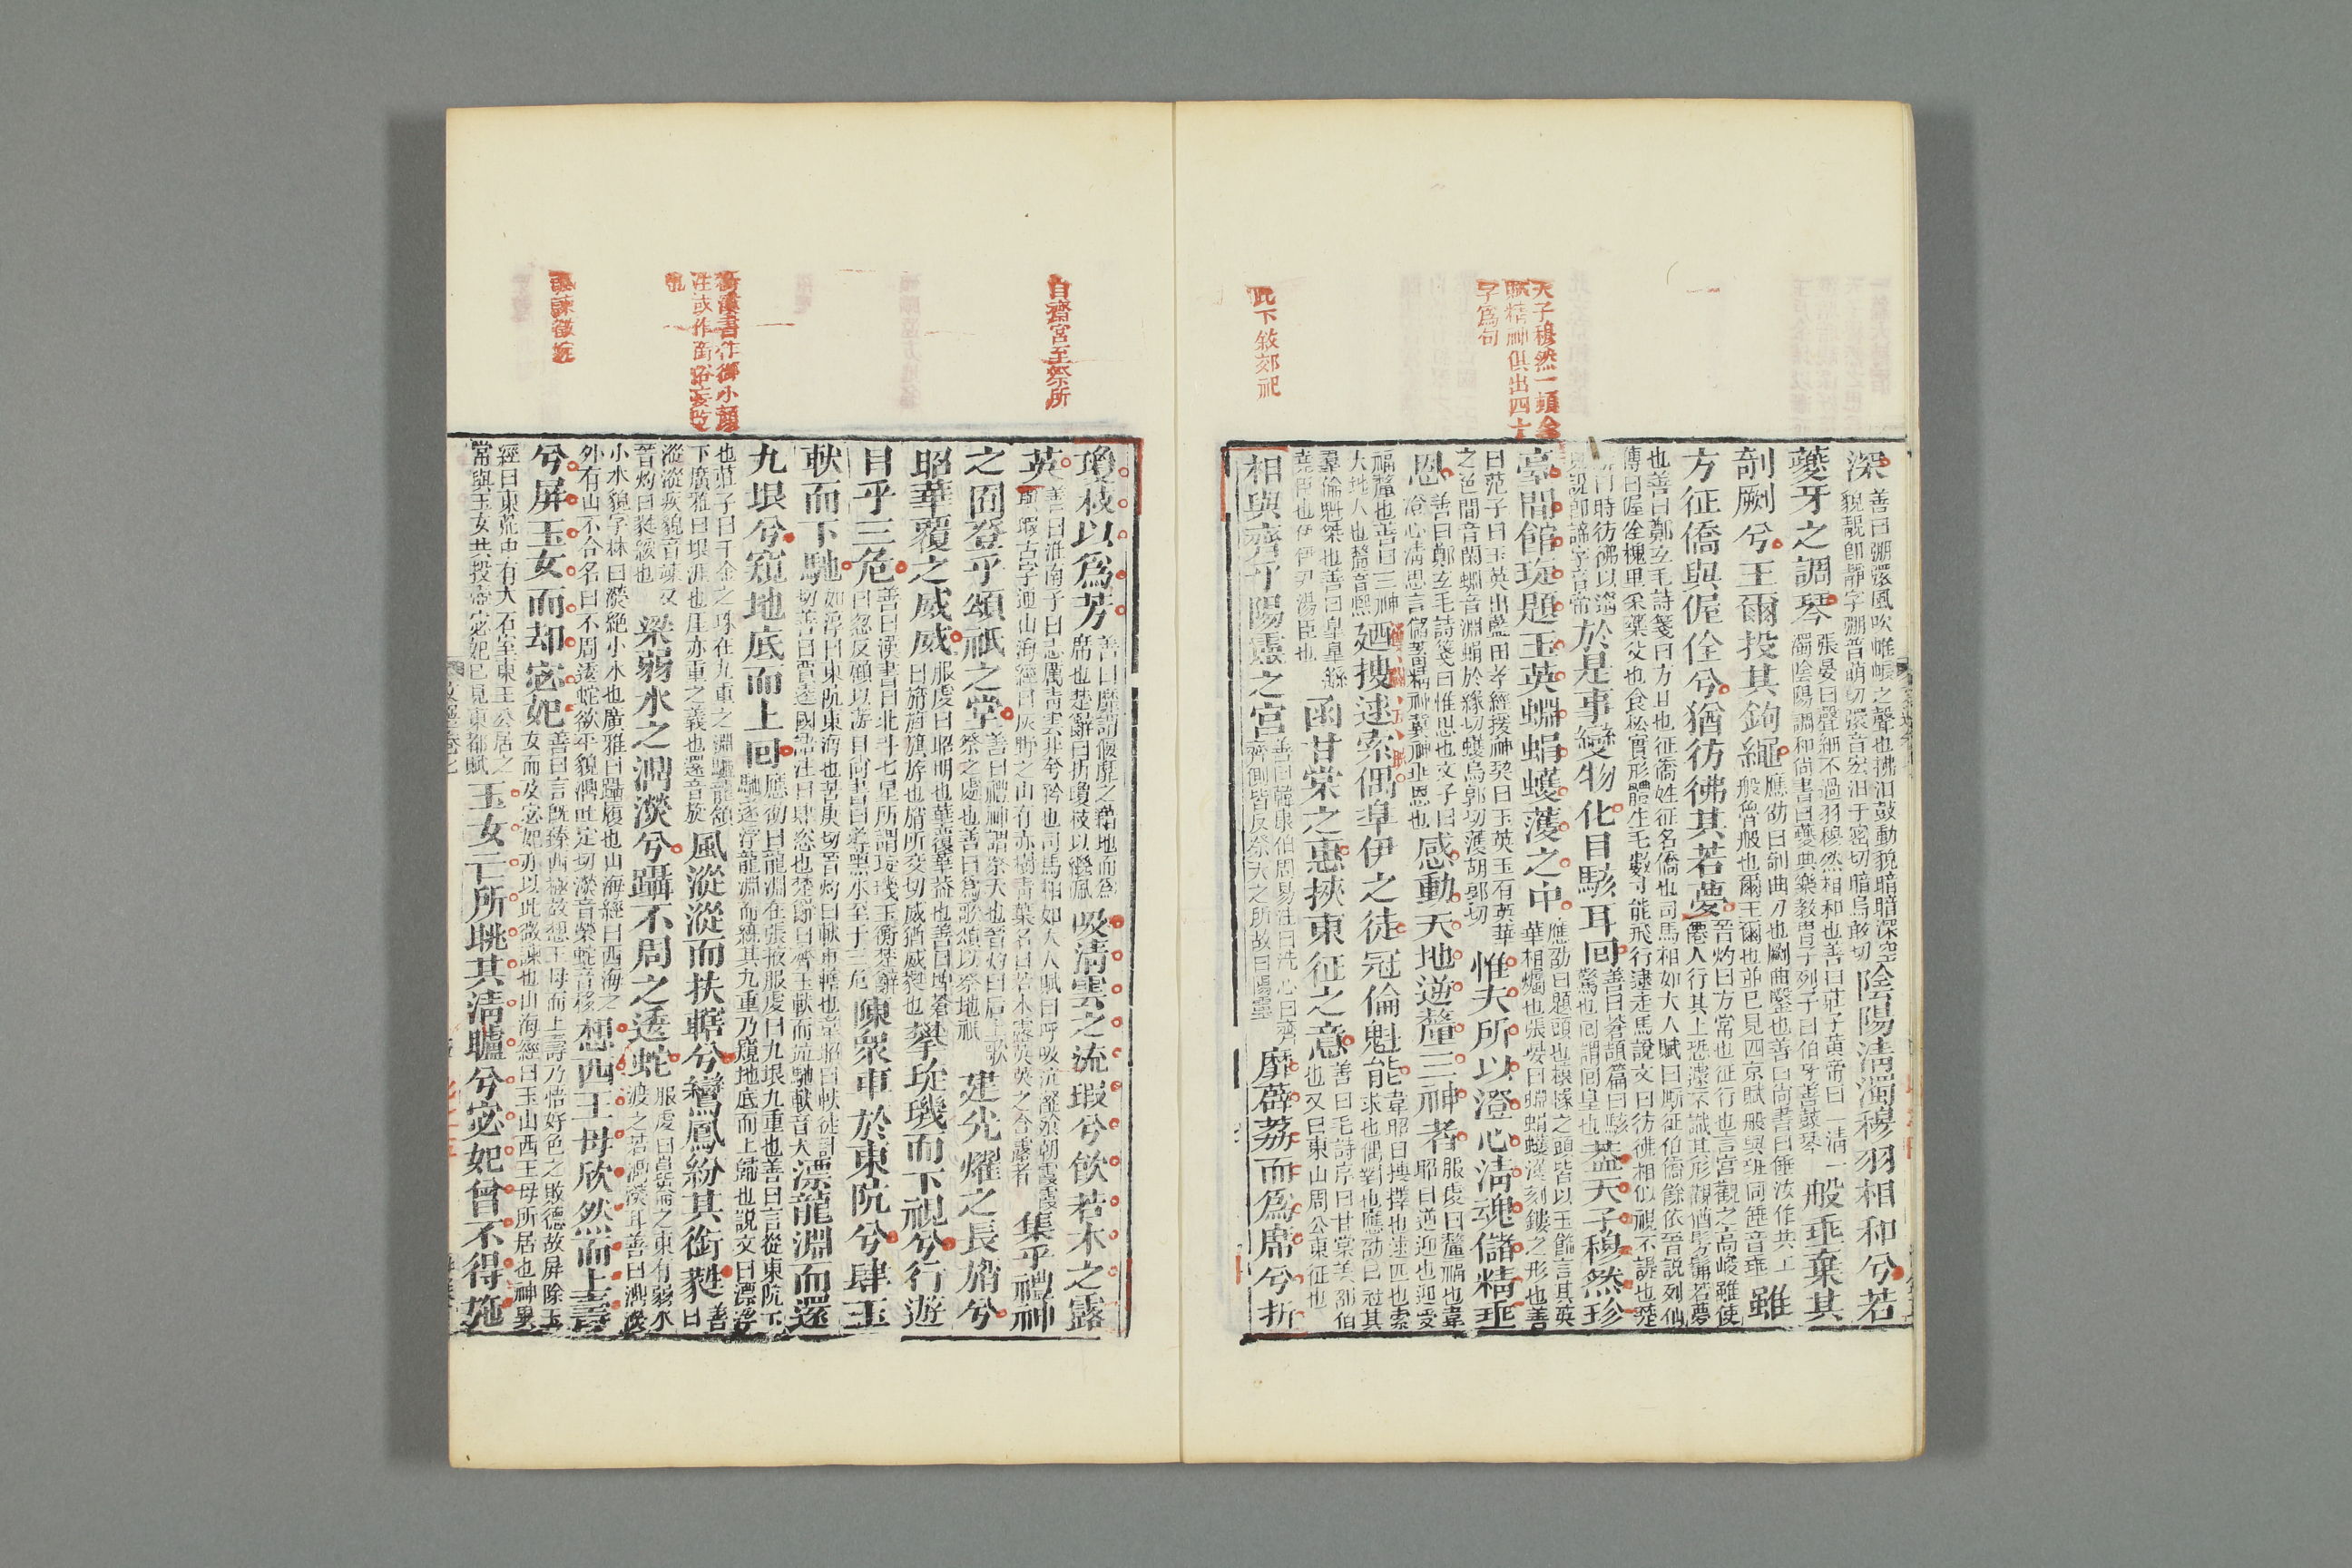 此下敘郊祀
天子穆然一頭
賦精神俱出四
字爲句
深善曰弸彋風吹帷帳之聲也拂汨鼓動貌暗暗深空貌靚即靜字弸普萌切彋音宏汨于密切暗烏敢切陰陽清濁穆羽相和兮若
夔牙之調琴張晏曰聲細不過羽穆然相和也善曰莊子黃帝曰一清一濁陰陽調和尚書曰夔典樂教胄子列子曰伯牙善鼓琴般倕棄其
剞劂兮王爾投其鉤繩應劭曰剞曲刀也劂曲鑿也善曰尚書曰倕汝作共工般魯般也爾王爾也並已見西京賦般與班同倕音垂雖
方征僑與偓佺兮猶彷彿其若夢晉灼曰方常也征行也言宮觀之高峻雖使僊人行其上恐遽不識其形觀猶髣髴若夢
也善曰鄭玄毛詩箋曰方且也征僑姓征名僑也司馬相如大人賦曰厮征伯僑餘依晉説列仙傳曰偓佺槐里采藥父也食松實形體生毛數寸能飛行逮走馬說文曰彷彿相似視不諟也楚
辭曰時彷彿以遙見諟即諦字音帝於是事變物化目駭耳回善曰蒼頡篇曰駭驚也回謂回皇也蓋天子穆然珍
臺閒館琁題玉英蜵蜎蠖濩之中應劭曰題頭也榱椽之頭皆以玉飾言其英華相爥也張晏曰蜵蜎蠖濩刻鏤之形也善
曰范子曰玉英出藍田孝經援神契曰玉英玉有英華之色閒音閑蜵音淵蜎於緣切蠖烏郭切濩胡郭切惟夫所以澄心清魂儲精垂
恩善曰鄭玄毛詩箋曰惟思也文子曰澄心清思言儲蓄精神冀神垂恩也感動天地逆釐三神者服虔曰釐福也韋昭曰逆迎也迎受
福釐也善曰三神天地人也釐音熙廼搜逑索偶皋伊之徒冠倫魁能韋昭曰搜擇也逑匹也索求也偶對也應劭曰冠其
羣倫魁桀也善曰皋皋繇堯臣也伊伊尹湯臣也函甘棠之惠挾東征之意善曰毛詩序曰甘棠美邵伯也又曰東山周公東征也
相與齊乎陽靈之宮善曰韓康伯周易注曰洗心曰齊齊側皆反祭天之所故曰陽靈靡薜荔而爲席兮折
自齋宮至祭所
銜漢書作御小顏
注或作銜俗妄改
也
諷諫微婉
瓊枝以爲芳善曰靡謂偃靡之藉地而爲席也楚辭曰折瓊枝以繼佩吸清雲之流瑕兮飲若木之露
英善曰淮南子曰志厲青雲非夸矜也司馬相如大人賦曰呼吸沆瀣餐朝霞霞與瑕古字通山海經曰灰野之山有赤樹青葉名曰若木露英英之含露者集乎禮神
之囿登乎頌祇之堂善曰禮神謂祭天也晉灼曰后土歌祭之處也善曰爲歌頌以祭地祇建光燿之長旓兮
昭華覆之威威服虔曰昭明也華覆華蓋也善曰埤蒼曰旓旌旗旒也旓所交切威猶葳蕤也攀琁璣而下視兮行遊
目乎三危善曰漢書曰北斗七星所謂琁璣玉衡楚辭曰忽反顧以游目尚書曰導黑水至于三危陳衆車於東阬兮肆玉
軑而下馳如淳曰東阬東海也苦庚切晉灼曰軑車轄也韋昭曰軑徒計切善曰賈逵國語注曰肆恣也楚辭曰齊玉軑而並馳軑音大漂龍淵而還
九垠兮窺地底而上回應劭曰龍淵在張掖服虔曰九垠九重也善曰言從東阬下馳遂浮龍淵而繞其九重乃窺地底而上歸也説文曰漂浮
也莊子曰千金之珠在九重之淵驪龍頷下廣雅曰垠涯也厓亦重之義也還音旋風漎漎而扶轄兮鸞鳳紛其銜蕤善曰
漎漎疾貌音竦又晉灼曰蕤綏也梁弱水之濎濙兮躡不周之逶蛇服虔曰崑崙之東有弱水渡之若濎濙耳善曰濎濙
小水貌字林曰濙絕小水也廣雅曰躡履也山海經曰西海之外有山不合名曰不周逶蛇欲平貌濎吐定切濙音滎蛇音移想西王母欣然而上壽
兮屏玉女而却宓妃善曰言既臻西極故想王母而上壽乃悟好色之敗德故屏除玉女而及宓妃亦以此微諫也山海經曰玉山西王母所居也神異
經曰東荒中有大石室東王公居之常與玉女共投壺宓妃已見東都賦玉女亡所眺其清矑兮宓妃曾不得施